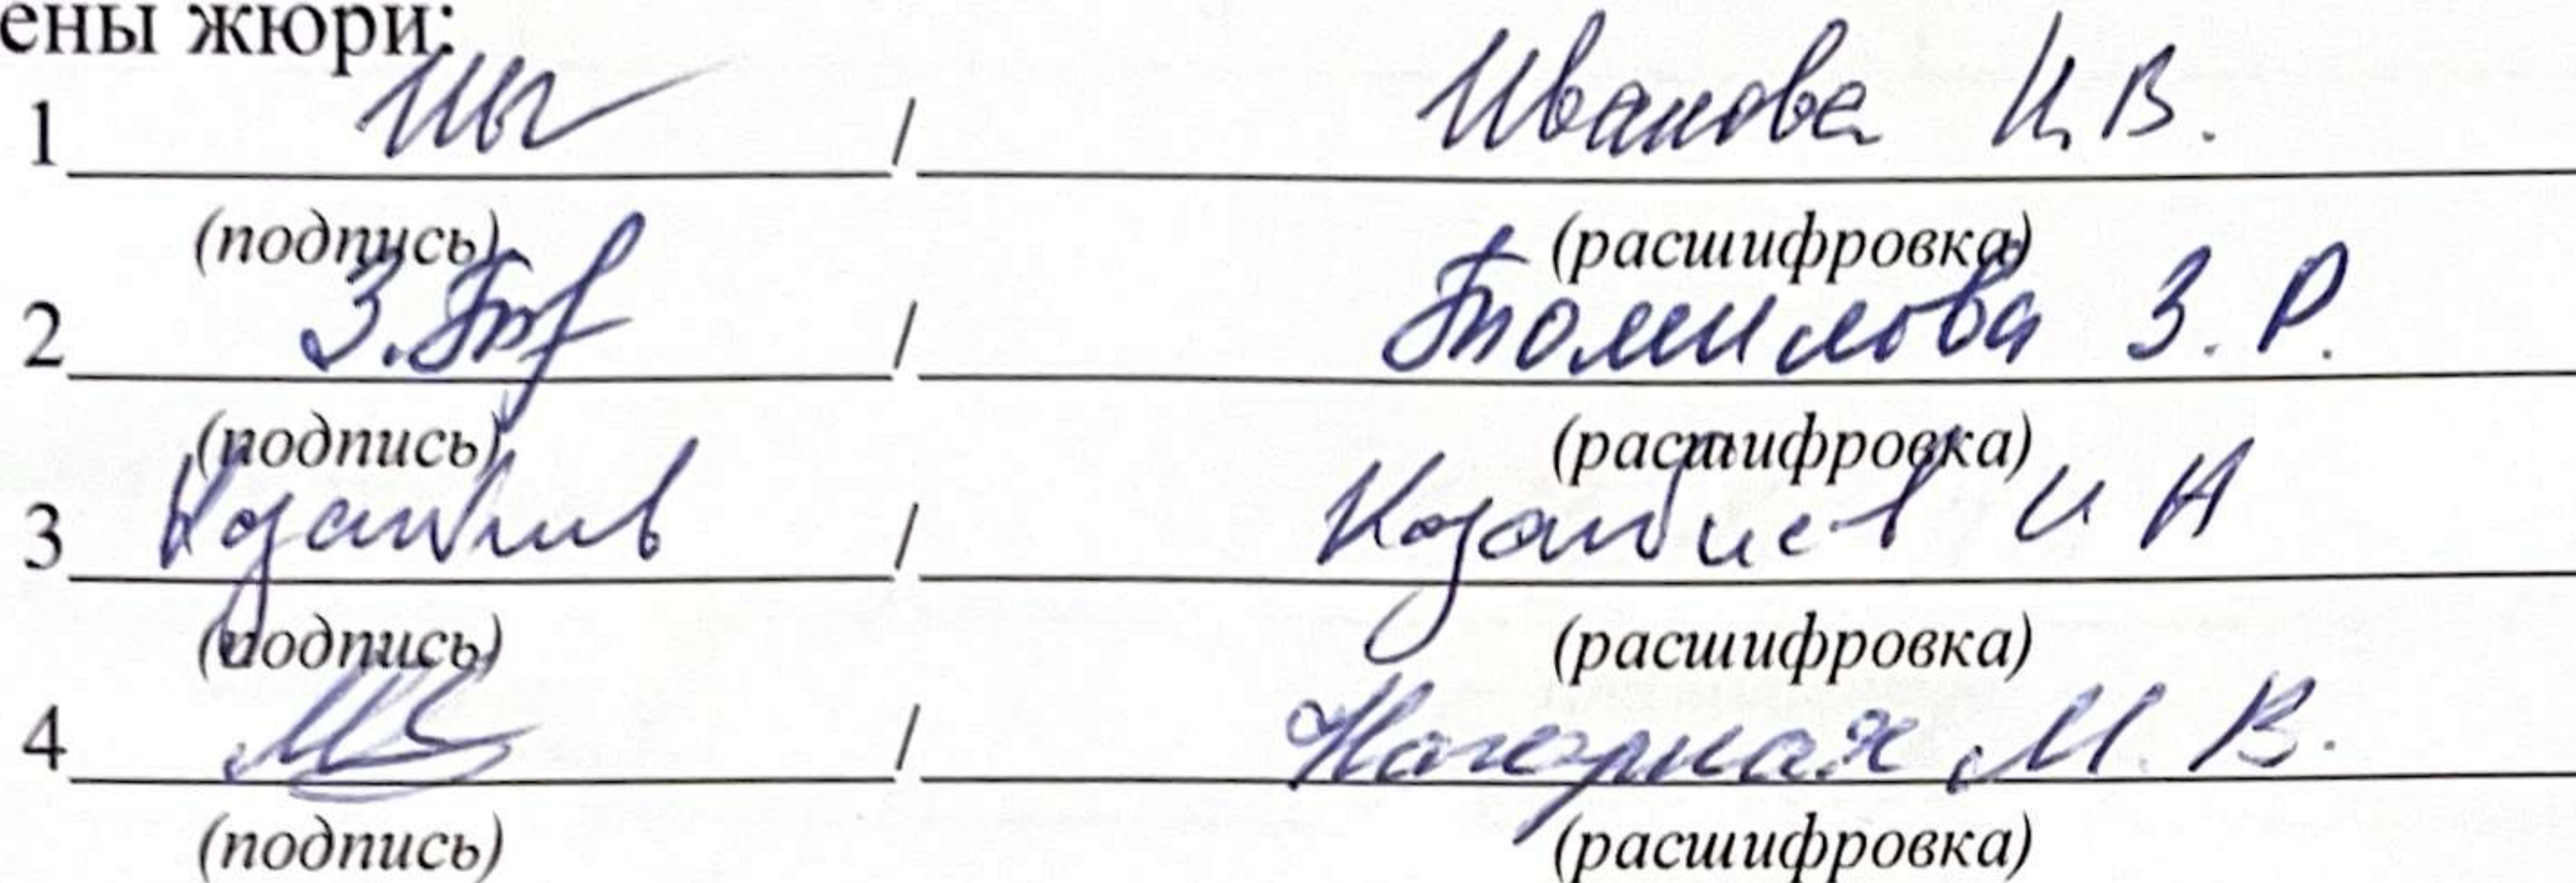 ены жюри:
1 / Иванова И.В.
(подпись) (расшифровка)
2 З. / Томилова З. Р.
(подпись) (расшифровка)
3 / И А
(подпись) (расшифровка)
4 / Нагорная М. В.
(подпись) (расшифровка)